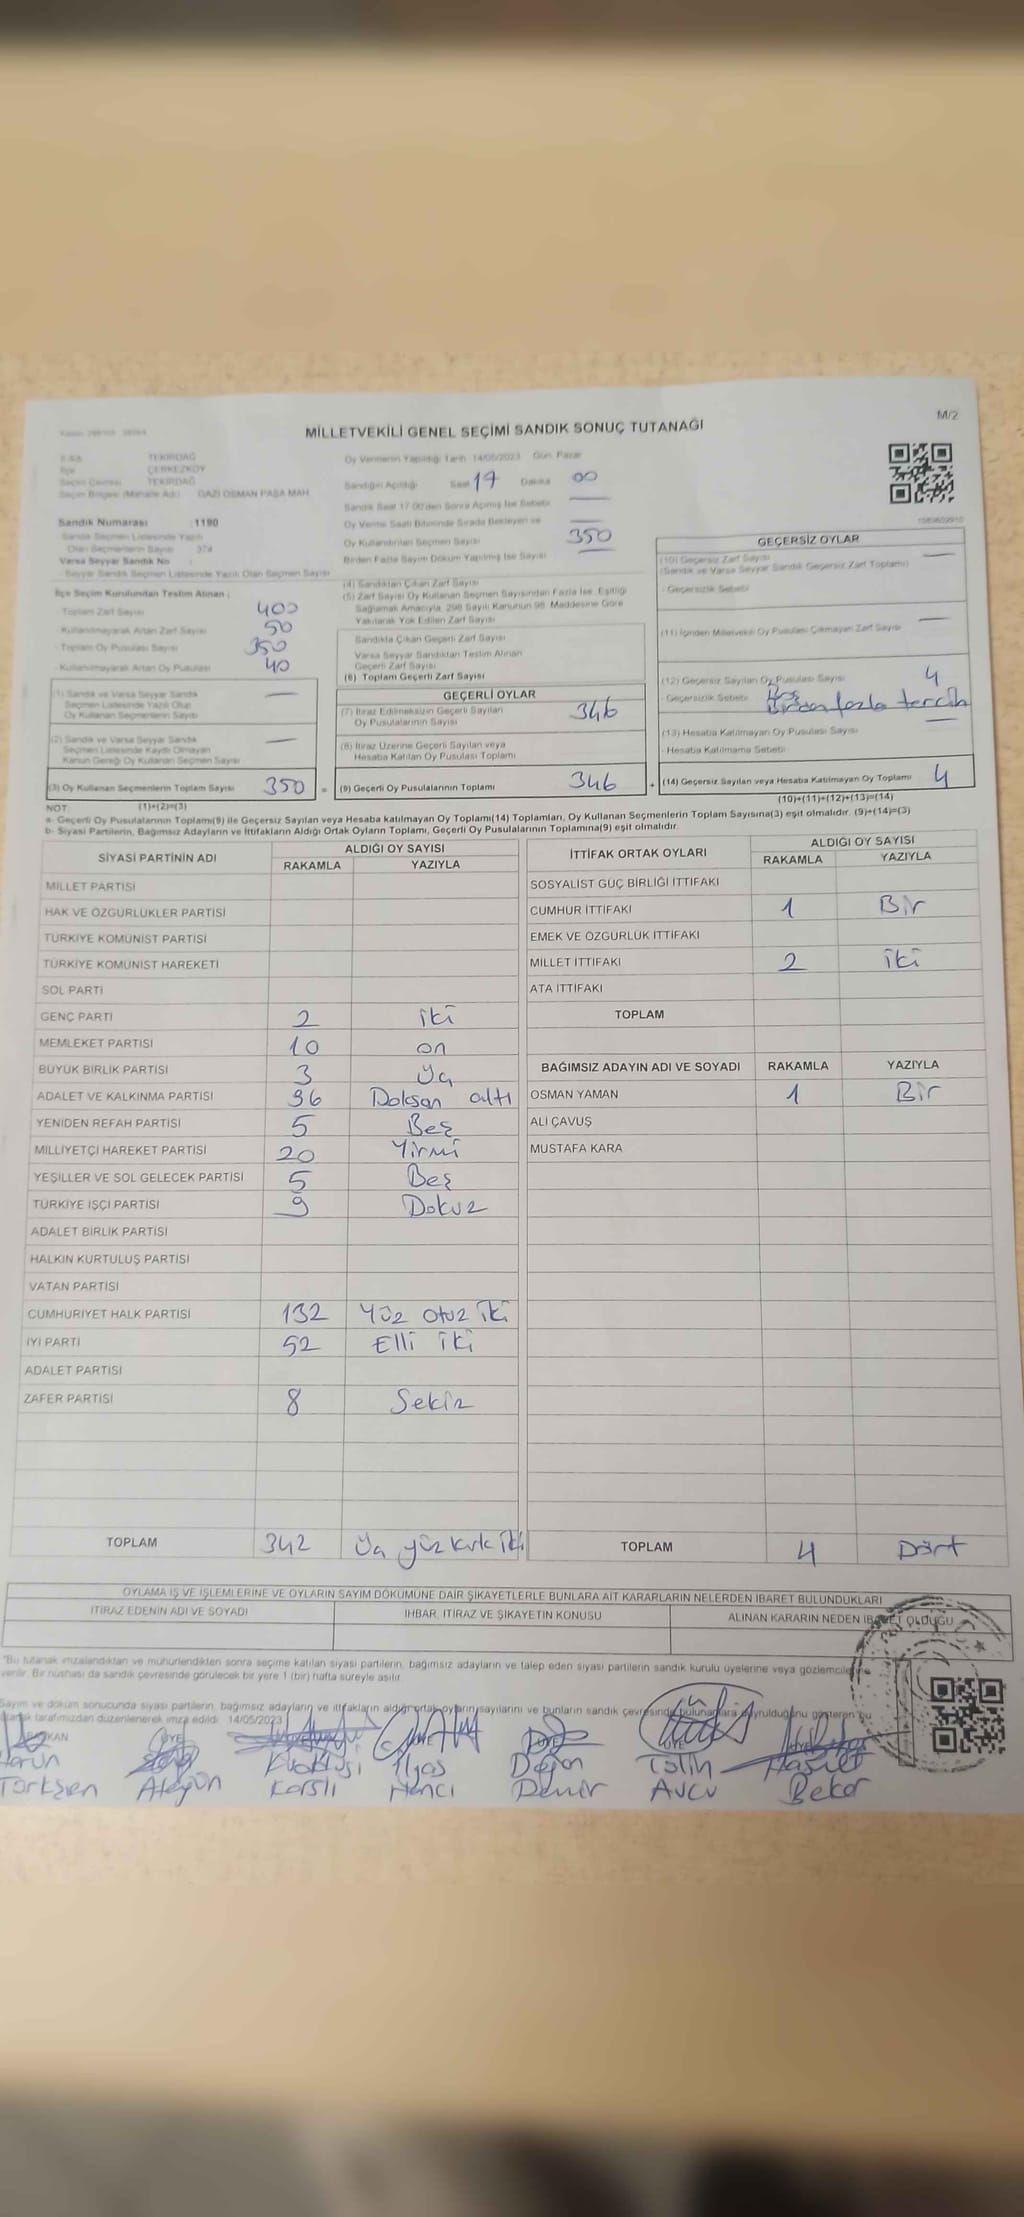 M/2
MİLLETVEKİLİ GENEL SEÇİMİ SANDIK SONUÇ TUTANAĞI
TEKİRDAĞ
İlçe ÇERKEZKÖY
Seçim Çevresi TEKİRDAĞ
Seçim Bölgesi (Mahalle Adı) GAZİ OSMAN PAŞA MAH.
Sandık Numarası : 1190
Sandık Seçmen Listesinde Yazılı
Olan Seçmenlerin Sayısı 374
Varsa Seyyar Sandık No
Seyyar Sandık Seçmen Listesinde Yazılı Olan Seçmen Sayısı
İlçe Seçim Kurulundan Teslim Alınan :
Toplam Zarf Sayısı 400
Kullanılmayarak Artan Zarf Sayısı 50
Toplam Oy Pusulası Sayısı 350
Kullanılmayarak Artan Oy Pusulası 40
(1) Sandık ve Varsa Seyyar Sandık —
Seçmen Listesinde Yazılı Olup
Oy Kullanan Seçmenlerin Sayısı
(2) Sandık ve Varsa Seyyar Sandık —
Seçmen Listesinde Kaydı Olmayan
Kanun Gereği Oy Kullanan Seçmen Sayısı
(3) Oy Kullanan Seçmenlerin Toplam Sayısı 350 =
(1)+(2)=(3)
Oy Vermenin Yapıldığı Tarih 14/05/2023 Gün Pazar
Sandığın Açıldığı Saat 17 Dakika 00
Sandık Saat 17.00'den Sonra Açılmış İse Sebebi —
Oy Verme Saati Bitiminde Sırada Bekleyen ve —
Oy Kullandırılan Seçmen Sayısı 350
Birden Fazla Sayım Döküm Yapılmış İse Sayısı —
(4) Sandıktan Çıkan Zarf Sayısı
(5) Zarf Sayısı Oy Kullanan Seçmen Sayısından Fazla İse, Eşitliği
Sağlamak Amacıyla, 298 Sayılı Kanunun 98. Maddesine Göre
Yakılarak Yok Edilen Zarf Sayısı
Sandıkta Çıkan Geçerli Zarf Sayısı
Varsa Seyyar Sandıktan Teslim Alınan
Geçerli Zarf Sayısı
(6) Toplam Geçerli Zarf Sayısı
GEÇERLİ OYLAR
(7) İtiraz Edilmeksizin Geçerli Sayılan 346
Oy Pusulalarının Sayısı
(8) İtiraz Üzerine Geçerli Sayılan veya
Hesaba Katılan Oy Pusulası Toplamı
(9) Geçerli Oy Pusulalarının Toplamı 346 +
GEÇERSİZ OYLAR
(10) Geçersiz Zarf Sayısı —
(Sandık ve Varsa Seyyar Sandık Geçersiz Zarf Toplamı)
Geçersizlik Sebebi
(11) İçinden Milletvekili Oy Pusulası Çıkmayan Zarf Sayısı —
(12) Geçersiz Sayılan Oy Pusulası Sayısı 4
Geçersizlik Sebebi Boş
Birden fazla tercih
(13) Hesaba Katılmayan Oy Pusulası Sayısı —
Hesaba Katılmama Sebebi
(14) Geçersiz Sayılan veya Hesaba Katılmayan Oy Toplamı 4
(10)+(11)+(12)+(13)=(14)
NOT:
a- Geçerli Oy Pusulalarının Toplamı(9) ile Geçersiz Sayılan veya Hesaba katılmayan Oy Toplamı(14) Toplamları, Oy Kullanan Seçmenlerin Toplam Sayısına(3) eşit olmalıdır. (9)+(14)=(3)
b- Siyasi Partilerin, Bağımsız Adayların ve İttifakların Aldığı Ortak Oyların Toplamı, Geçerli Oy Pusulalarının Toplamına(9) eşit olmalıdır.
SİYASİ PARTİNİN ADI ALDIĞI OY SAYISI
RAKAMLA YAZIYLA
MİLLET PARTİSİ
HAK VE ÖZGÜRLÜKLER PARTİSİ
TÜRKİYE KOMÜNİST PARTİSİ
TÜRKİYE KOMÜNİST HAREKETİ
SOL PARTİ
GENÇ PARTİ 2 iki
MEMLEKET PARTİSİ 10 on
BÜYÜK BİRLİK PARTİSİ 3 Üç
ADALET VE KALKINMA PARTİSİ 96 Doksan altı
YENİDEN REFAH PARTİSİ 5 Beş
MİLLİYETÇİ HAREKET PARTİSİ 20 Yirmi
YEŞİLLER VE SOL GELECEK PARTİSİ 5 Beş
TÜRKİYE İŞÇİ PARTİSİ 9 Dokuz
ADALET BİRLİK PARTİSİ
HALKIN KURTULUŞ PARTİSİ
VATAN PARTİSİ
CUMHURİYET HALK PARTİSİ 132 Yüz otuz iki
İYİ PARTİ 52 Elli iki
ADALET PARTİSİ
ZAFER PARTİSİ 8 Sekiz
TOPLAM 342 Üç yüz kırk iki
İTTİFAK ORTAK OYLARI ALDIĞI OY SAYISI
RAKAMLA YAZIYLA
SOSYALİST GÜÇ BİRLİĞİ İTTİFAKI
CUMHUR İTTİFAKI 1 Bir
EMEK VE ÖZGÜRLÜK İTTİFAKI
MİLLET İTTİFAKI 2 iki
ATA İTTİFAKI
TOPLAM
BAĞIMSIZ ADAYIN ADI VE SOYADI RAKAMLA YAZIYLA
OSMAN YAMAN 1 Bir
ALİ ÇAVUŞ
MUSTAFA KARA
TOPLAM 4 Dört
OYLAMA İŞ VE İŞLEMLERİNE VE OYLARIN SAYIM DÖKÜMÜNE DAİR ŞİKAYETLERLE BUNLARA AİT KARARLARIN NELERDEN İBARET BULUNDUKLARI
İTİRAZ EDENİN ADI VE SOYADI İHBAR, İTİRAZ VE ŞİKAYETİN KONUSU ALINAN KARARIN NEDEN İBARET OLDUĞU
*Bu tutanak imzalandıktan ve mühürlendikten sonra seçime katılan siyasi partilerin, bağımsız adayların ve talep eden siyasi partilerin sandık kurulu üyelerine veya gözlemcilerine
verilir. Bir nüshası da sandık çevresinde görülecek bir yere 1 (bir) hafta süreyle asılır.
Sayım ve döküm sonucunda siyasi partilerin, bağımsız adayların ve ittifakların aldığı ortak oyların sayılarını ve bunların sandık çevresinde bulunanlara duyurulduğunu gösteren bu
tutanak tarafımızdan düzenlenerek imza edildi. 14/05/2023
BAŞKAN ÜYE ÜYE ÜYE ÜYE
Harun İlyas Doğan Tülin
Türkşen Karslı Demir Avcu